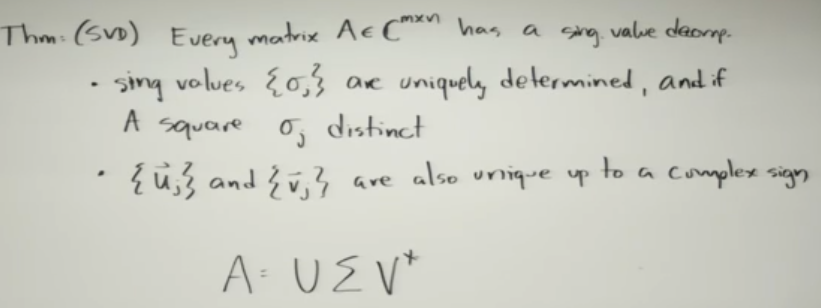 Thm: (SVD) Every matrix A ∈ ℂ^{m×n} has a sing. value decomp.
• sing values {σ_j} are uniquely determined, and if
A square σ_j distinct
• {u⃗_j} and {v⃗_j} are also unique up to a complex sign
A = U Σ V*